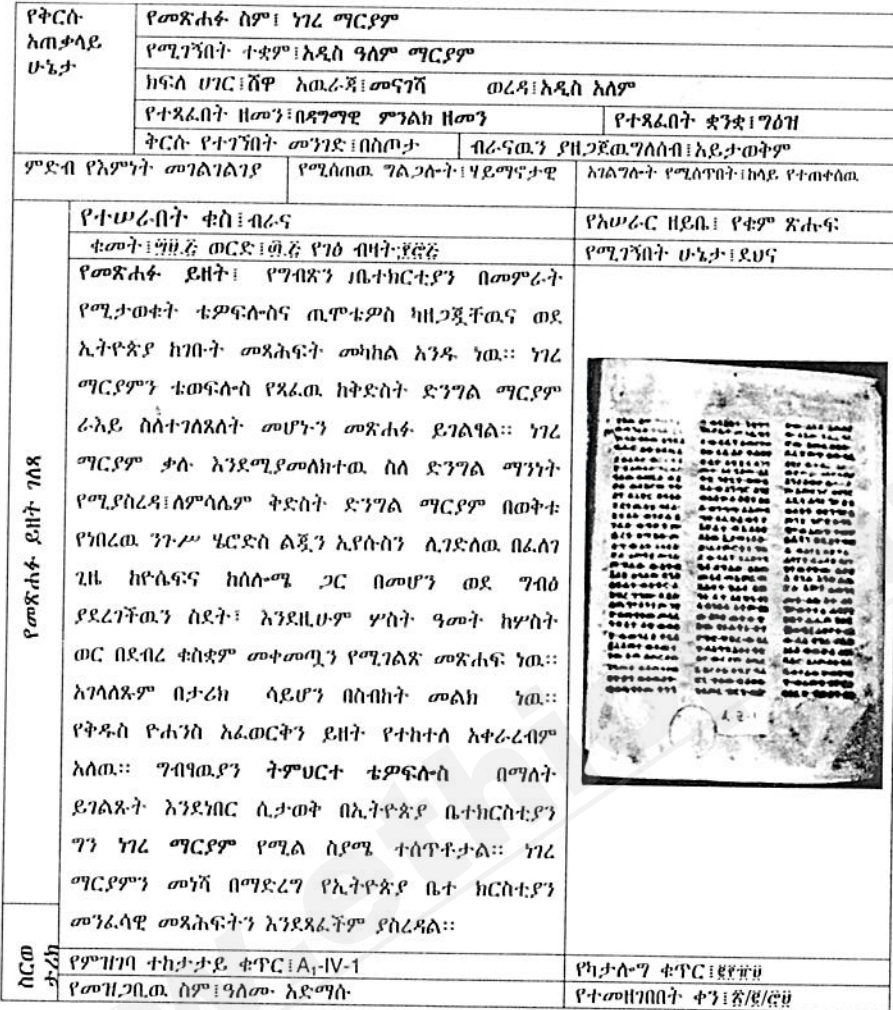 የቅርሱ አጠቃላይ ሁኔታ
የመጽሐፉ ስም፤ ነገረ ማርያም
የሚገኝበት ተቋም፤አዲስ ዓለም ማርያም
ክፍለ ሀገር፤ሸዋ አዉራጃ፤መናገሻ ወረዳ፤አዲስ አለም
የተጻፈበት ዘመን፤በዳግማዊ ምንልክ ዘመን የተጻፈበት ቋንቋ፤ግዕዝ
ቅርሱ የተገኘበት መንገድ፤በስጦታ ብራናዉን ያዘጋጀዉግለሰብ፤አይታወቅም
ምድብ የእምነት መገልገልገያ የሚሰጠዉ ግልጋሎት፤ሃይማኖታዊ አገልግሎት የሚሰጥበት፤ከላይ የተጠቀሰዉ
የመጽሐፉ ይዘት ገለጻ
የተሠራበት ቁስ፤ብራና የአሠራር ዘይቤ፤ የቁም ጽሑፍ
ቁመት፤ ወርድ፤ የገፅ ብዛት፤
የሚገኝበት ሁኔታ፤ደህና
የመጽሐፉ ይዘት፤ የግብጽን ቤተክርቲያን በመምራት
የሚታወቁት ቴዎፍሎስና ጢሞቴዎስ ካዘጋጇቸዉና ወደ
ኢትዮጵያ ከገቡት መጻሕፍት መካከል አንዱ ነዉ፡፡ ነገረ
ማርያምን ቴወፍሎስ የጻፈዉ ከቅድስት ድንግል ማርያም
ራእይ ስለተገለጸለት መሆኑን መጽሐፉ ይገልፃል፡፡ ነገረ
ማርያም ቃሉ እንደሚያመለክተዉ ስለ ድንግል ማንነት
የሚያስረዳ፤ለምሳሌም ቅድስት ድንግል ማርያም በወቅቱ
የነበረዉ ንጉሥ ሄሮድስ ልጇን ኢየሱስን ሊገድለዉ በፈለገ
ጊዜ ከዮሴፍና ከሰሎሜ ጋር በመሆን ወደ ግብፅ
ያደረገችዉን ስደት፣ እንደዚሁም ሦስት ዓመት ከሦስት
ወር በደብረ ቁስቋም መቀመጧን የሚገልጽ መጽሐፍ ነዉ፡፡
አገላለጹም በታሪክ ሳይሆን በስብከት መልክ ነዉ፡፡
የቅዱስ ዮሐንስ አፈወርቅን ይዘት የተከተለ አቀራረብም
አለዉ፡፡ ግብፃዉያን ትምህርተ ቴዎፍሎስ በማለት
ይገልጹት እንደነበር ሲታወቅ በኢትዮጵያ ቤተክርስቲያን
ግን ነገረ ማርያም የሚል ስያሜ ተሰጥቶታል፡፡ ነገረ
ማርያምን መነሻ በማድረግ የኢትዮጵያ ቤተ ክርስቲያን
መንፈሳዊ መጻሕፍትን እንደጻፈችም ያስረዳል፡፡
ስርወ ታሪክ
የምዝገባ ተከታታይ ቁጥር፤A₁-IV-1 የካታሎግ ቁጥር፤
የመዝጋቢዉ ስም፤ዓለሙ አድማሱ የተመዘገበበት ቀን፤